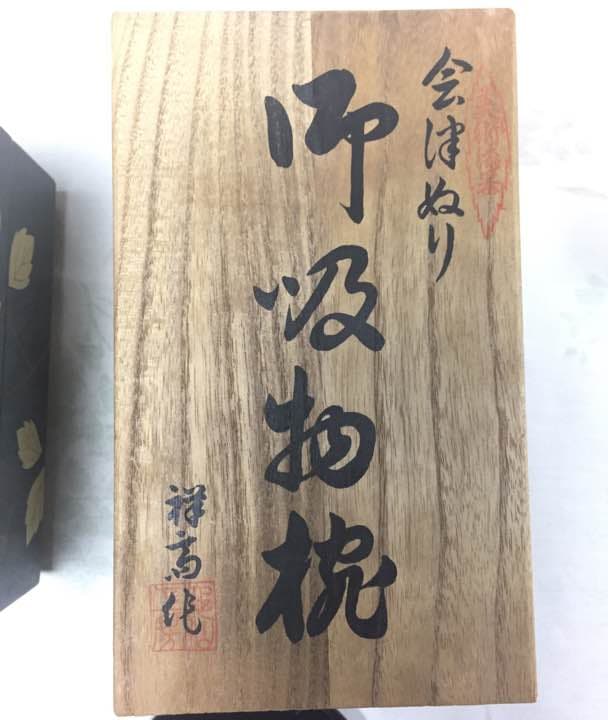 会津ぬり
御吸物椀
祥高作